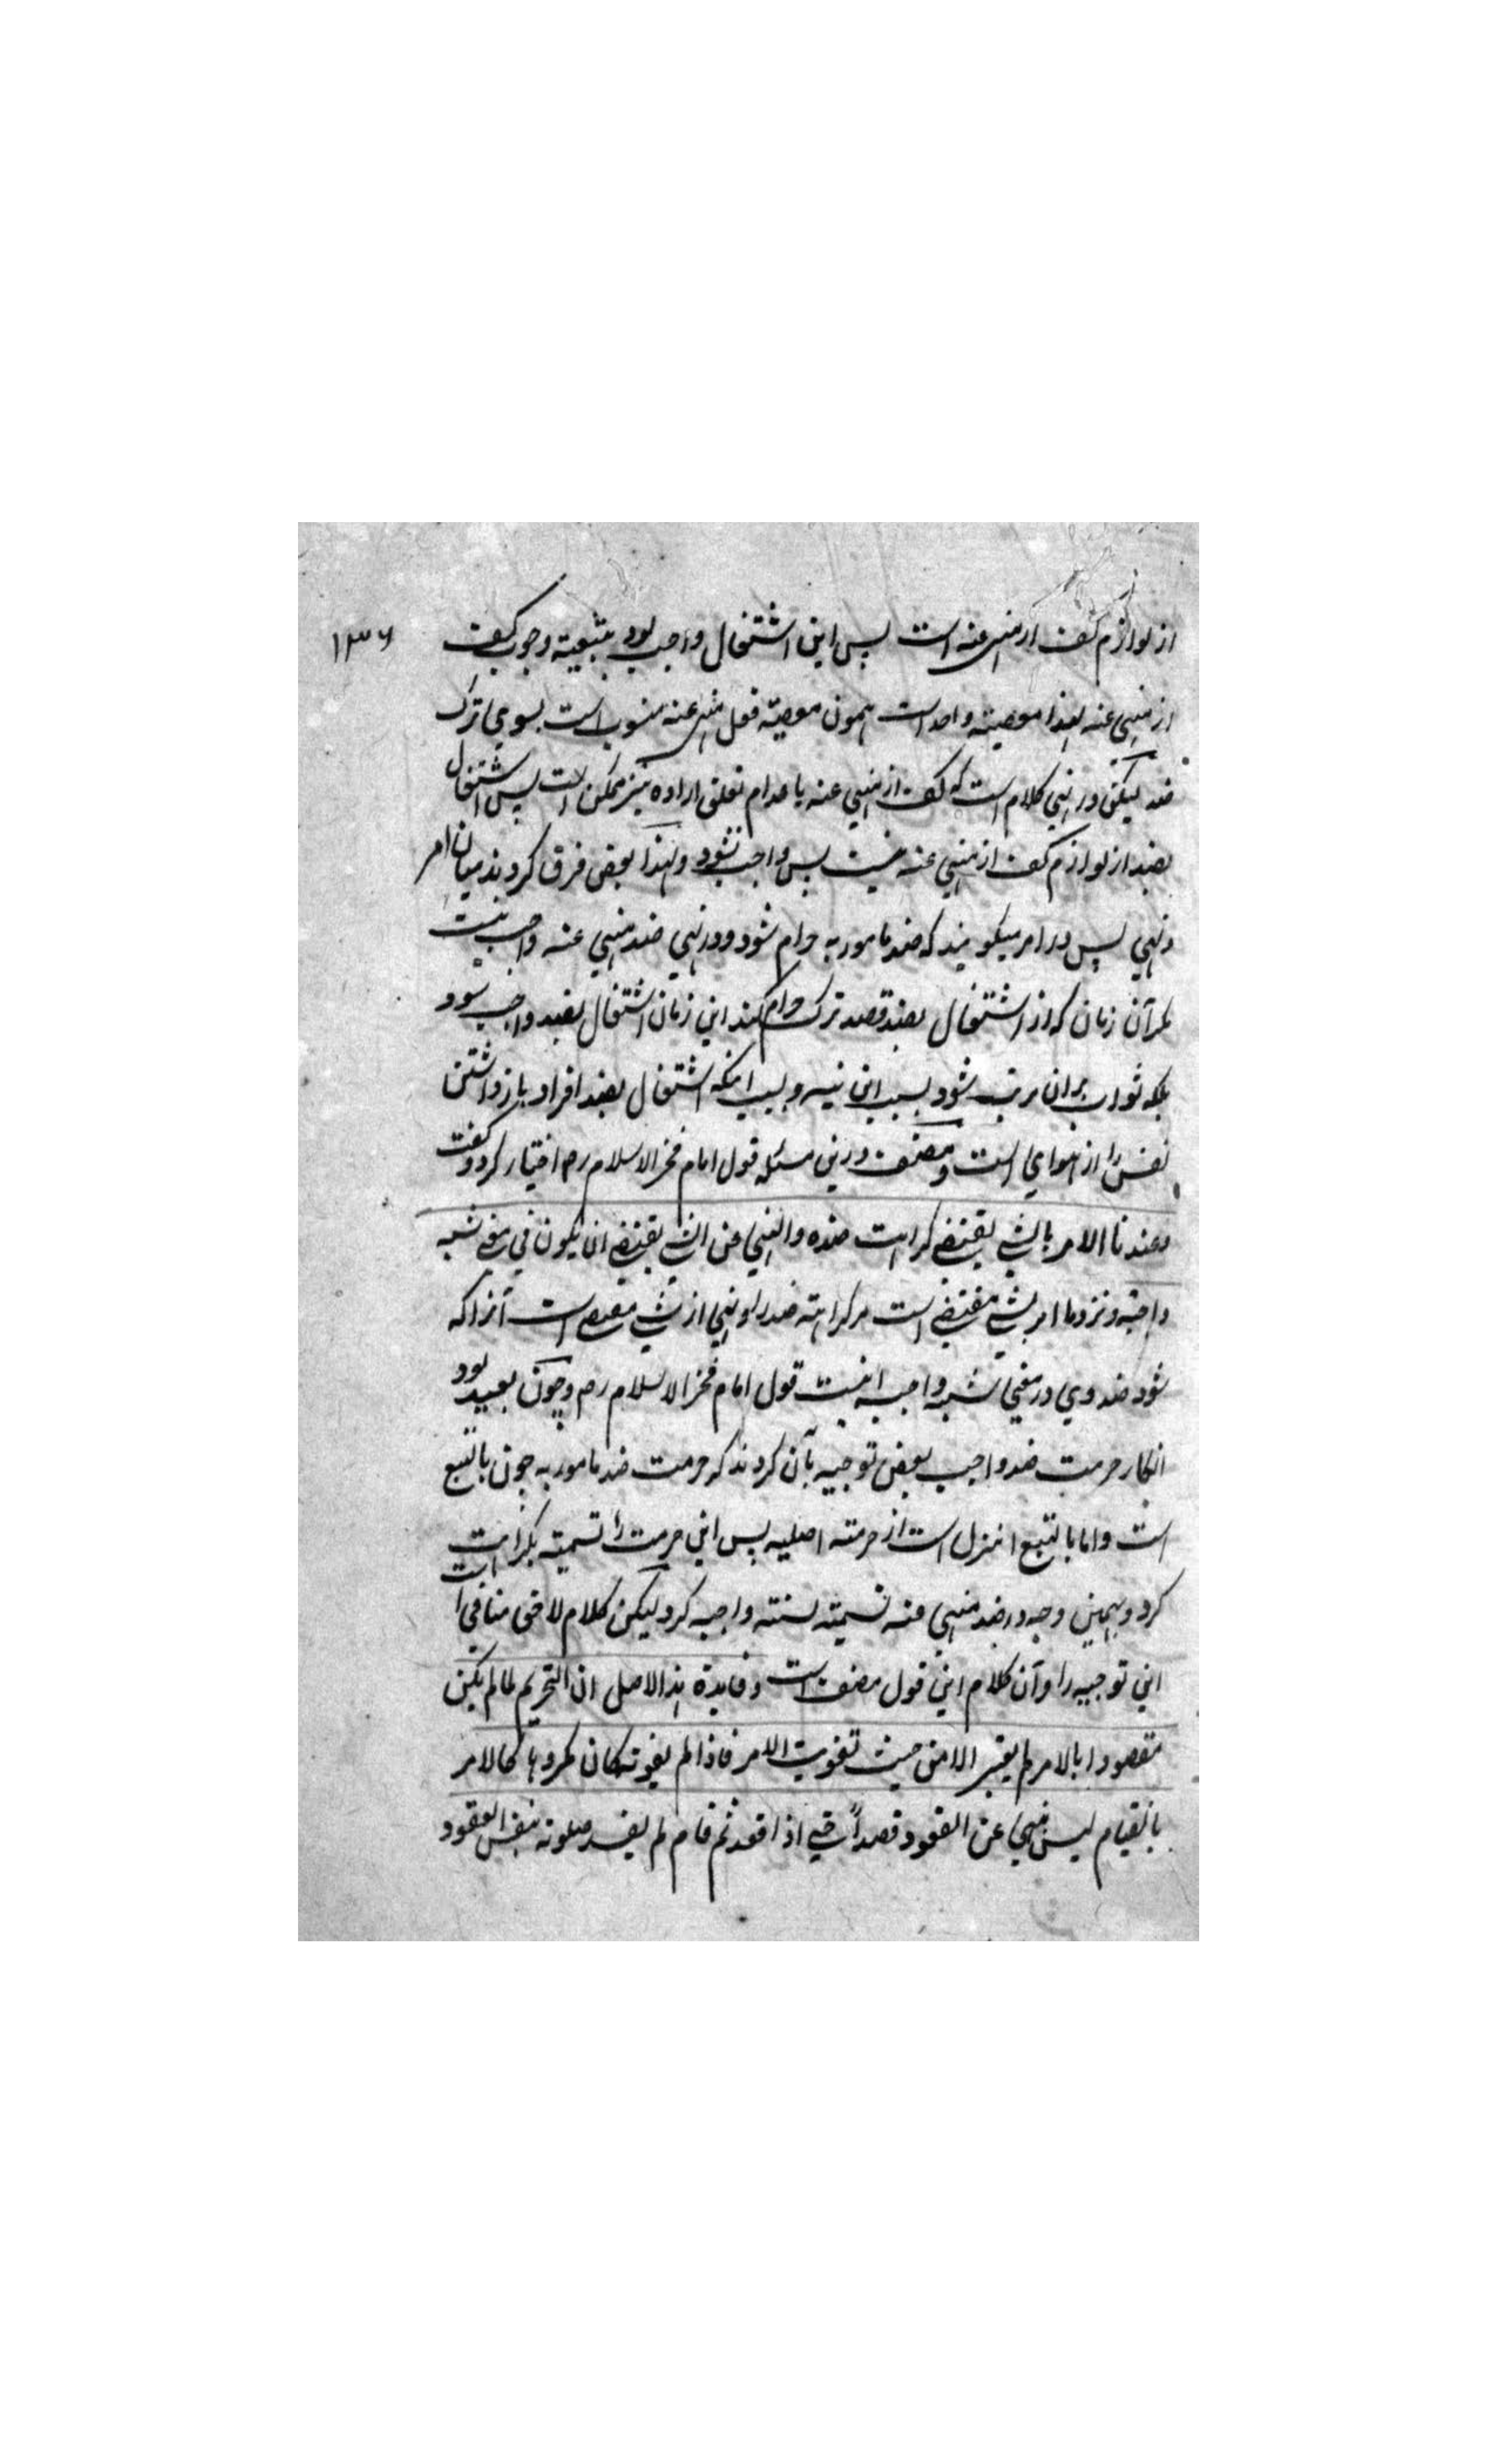 از لوازم کف از منهی عنه است پس این اشتغال واجب بود بتبعیة وجوب کف ۱۳۶
از منهی عنه لهذا معصیته واحد است همون معصیته فعل منهی عنه منسوب است بسوی ترک
ضد لیکن درینی کلام است که کف از منهی عنه با عدام تعلق اراده نیز ممکن است پس اشتغال
بضد از لوازم کف از منهی عنه نیست پس واجب نشود و لهذا بعضی فرق کردند میان امر
و نهی پس در امر میگویند که ضد مامور به حرام شود و در نهی ضد منهی عنه واجب نیست
مگر آن زمان که از اشتغال بضد قصد ترک حرام کند این زمان اشتغال بضد واجب شود
بلکه ثواب بران مرتب شود بسبب این نیه و بسبب اینکه اشتغال بضد افراد بازداشتن
نفس را از هوای است و مصنف درین مسئله قول امام فخر الاسلام رح اختیار کرد و گفت
وعندنا الامر بالشی یقتضی کراهت ضده والنهی عن الشی یقتضی ان یکون فی معنی سنه
واجبة و نزد ما امر بشی مقتضی است مر کراهته ضد را و نهی از شی مقتضی است آنرا که
شود ضد وی در معنی سنه واجبه اینست قول امام فخر الاسلام رح و چون بعید بود
انکار حرمت ضد واجب بعضی توجیه بآن کردند که حرمت ضد مامور به چون بالتبع
است و اما بالتبع انزل است از حرمته اصلیه پس این حرمت را تسمیته بکراهت
کرد و بهمین وجه در ضد منهی عنه تسمیته بسنته واجبه کرد لیکن کلام لاحق منافی است
این توجیه را و آن کلام این قول مصنف است وفایدة هذا الاصل ان التحریم لما لم یکن
مقصودا بالامر لم یعتبر الا من حیث تفویت الامر فاذا لم یفوته کان مکروها کالامر
بالقیام لیس بنهی عن القعود قصداً حتی اذا قعد ثم قام لم یفسد صلوته بنفس القعود